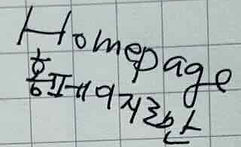 Homepage
홈페이지랑